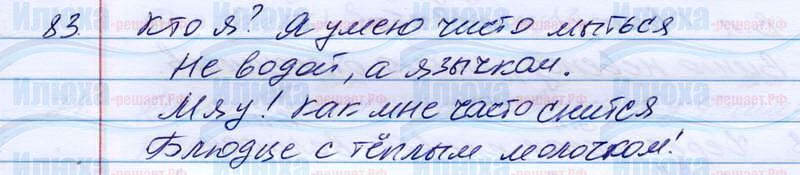 83. Кто я? Я умею чисто мыться
Не водой, а язычком.
Мяу! Как мне часто снится
Блюдце с тёплым молочком!